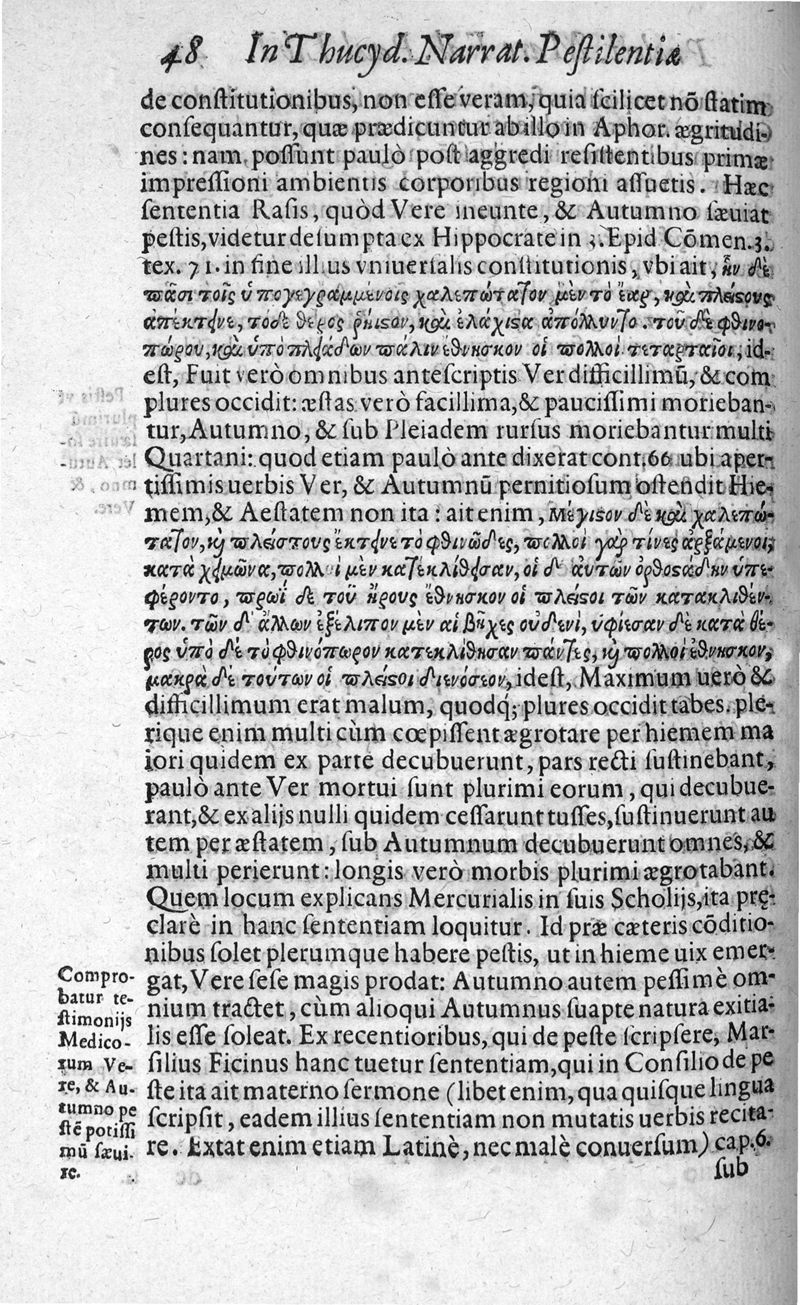 48 In Thucyd. Narrat. Pestilentiæ
de constitutionibus, non esse veram, quia scilicet nō statim
consequantur, quæ prædicuntur ab illo in Aphor. ægritudi-
nes: nam possunt paulò post aggredi resistentibus primæ
impressioni ambientis corporibus regioni assuetis. Hæc
sententia Rasis, quòd Vere ineunte, & Autumno sæuiat
pestis, videtur desumpta ex Hippocrate in 3. Epid Cōmen. 3.
tex. 71. in fine illius vniuersalis constitutionis, vbi ait, ἦν δὲ
πᾶσι τοῖς ὑπογεγραμμένοις χαλεπώτατον μὲν τὸ ἔαρ, καὶ πλείστους
ἀπέκτεινε, τὸ δὲ θέρος ῥήιστον, καὶ ἐλάχιστα ἀπόλλυντο. τοῦ δὲ φθινο-
πώρου, καὶ ὑπὸ πληάδων πάλιν ἔθνησκον οἱ πολλοὶ τεταρταῖοι, id-
est, Fuit verò omnibus antescriptis Ver difficillimū, & com
plures occidit: æstas verò facillima, & paucissimi morieban-
tur, Autumno, & sub Pleiadem rursus moriebantur multi
Quartani: quod etiam paulò ante dixerat cont. 66 ubi aper-
tissimis uerbis Ver, & Autumnū pernitiosum ostendit Hie-
mem, & Aestatem non ita: ait enim, Μέγιστον δὲ καὶ χαλεπώ-
τατον, καὶ πλείστους ἔκτεινε τὸ φθινῶδες, πολλοὶ γάρ τινες ἀρξάμενοι,
κατὰ χειμῶνα, πολλοὶ μὲν κατεκλίθησαν, οἱ δ' αὐτῶν ὀρθοστάδην ὑπε-
φέροντο, πρωῒ δὲ τοῦ ἦρους ἔθνησκον οἱ πλεῖστοι τῶν κατακλιθέν-
των. τῶν δ' ἄλλων ἐξέλιπον μὲν αἱ βῆχες οὐδενὶ, ὑφίεσαν δὲ κατὰ θέ-
ρος ὑπὸ δὲ τὸ φθινόπωρον κατεκλίθησαν πάντες, καὶ πολλοὶ ἔθνησκον,
μακρὰ δὲ τούτων οἱ πλεῖστοι διενόσεον, idest, Maximum uerò &
difficillimum erat malum, quodq; plures occidit tabes. ple-
rique enim multi cùm cœpissent ægrotare per hiemem ma
iori quidem ex parte decubuerunt, pars recti sustinebant,
paulò ante Ver mortui sunt plurimi eorum, qui decubue-
rant, & ex alijs nulli quidem cessarunt tusses, sustinuerunt au
tem per æstatem, sub Autumnum decubuerunt omnes, &
multi perierunt: longis verò morbis plurimi ægrotabant.
Quem locum explicans Mercurialis in suis Scholijs, ita prę-
clarè in hanc sententiam loquitur. Id præ cæteris cōditio-
nibus solet plerumque habere pestis, ut in hieme uix emer-
gat, Vere sese magis prodat: Autumno autem pessimè om-
nium tractet, cùm alioqui Autumnus suapte natura exitia-
lis esse soleat. Ex recentioribus, qui de peste scripsere, Mar-
silius Ficinus hanc tuetur sententiam, qui in Consilio de pe
ste ita ait materno sermone (libet enim, qua quisque lingua
scripsit, eadem illius sententiam non mutatis uerbis recita-
re. Extat enim etiam Latinè, nec malè conuersum) cap. 6.
sub
Compro-
batur te-
stimonijs
Medico-
rum Ve-
re, & Au-
tumno pe
stē potissi
mū sæui-
re.